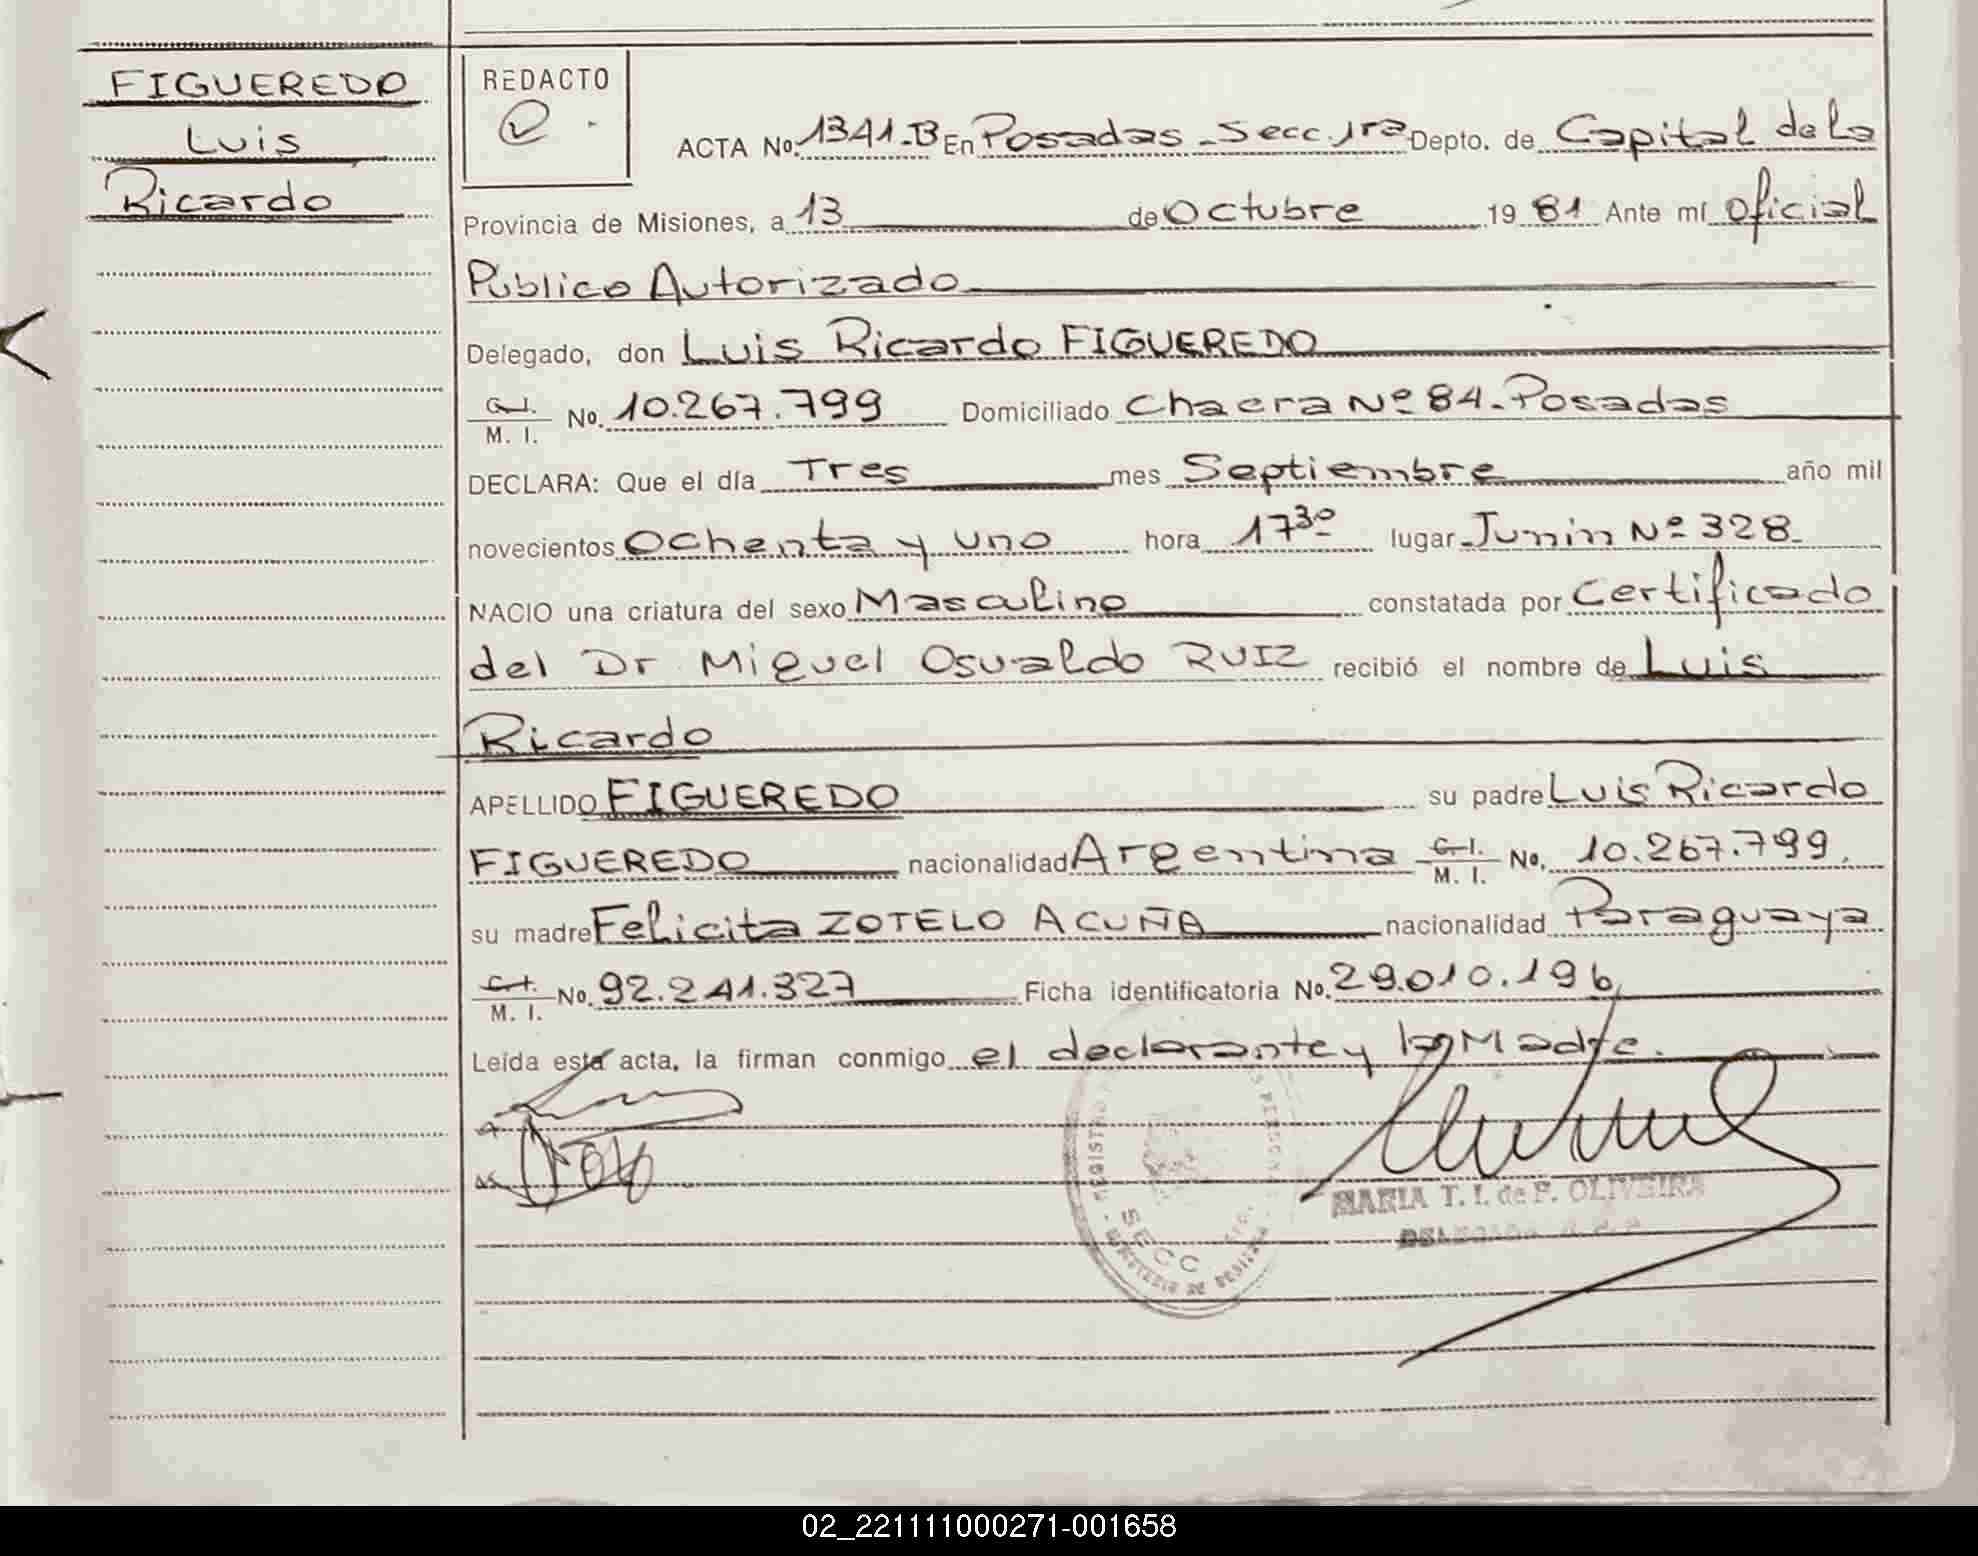 FIGUEREDO
Luis
Ricardo
REDACTO
ACTA No. 1341-B En Posadas - Secc. 1ra Depto. de Capital de la
Provincia de Misiones, a 13 de Octubre 19 81 Ante mí Oficial
Público Autorizado
Delegado, don Luis Ricardo FIGUEREDO
C. I. M. I. No. 10.267.799 Domiciliado Chacra Nº 84 - Posadas
DECLARA: Que el día Tres mes Septiembre año mil
novecientos Ochenta y uno hora 17 30 lugar Junin Nº 328
NACIO una criatura del sexo Masculino constatada por Certificado
del Dr Miguel Osvaldo RUIZ recibió el nombre de Luis
Ricardo
APELLIDO FIGUEREDO su padre Luis Ricardo
FIGUEREDO nacionalidad Argentina C. I. M. I. No. 10.267.799.
su madre Felicita ZOTELO ACUÑA nacionalidad Paraguaya
C. I. M. I. No. 92.241.327 Ficha identificatoria No. 29.010.196
Leída esta acta, la firman conmigo el declarante y la Madre.
SECC
MARIA T. I. de F. OLIVEIRA
02_221111000271-001658